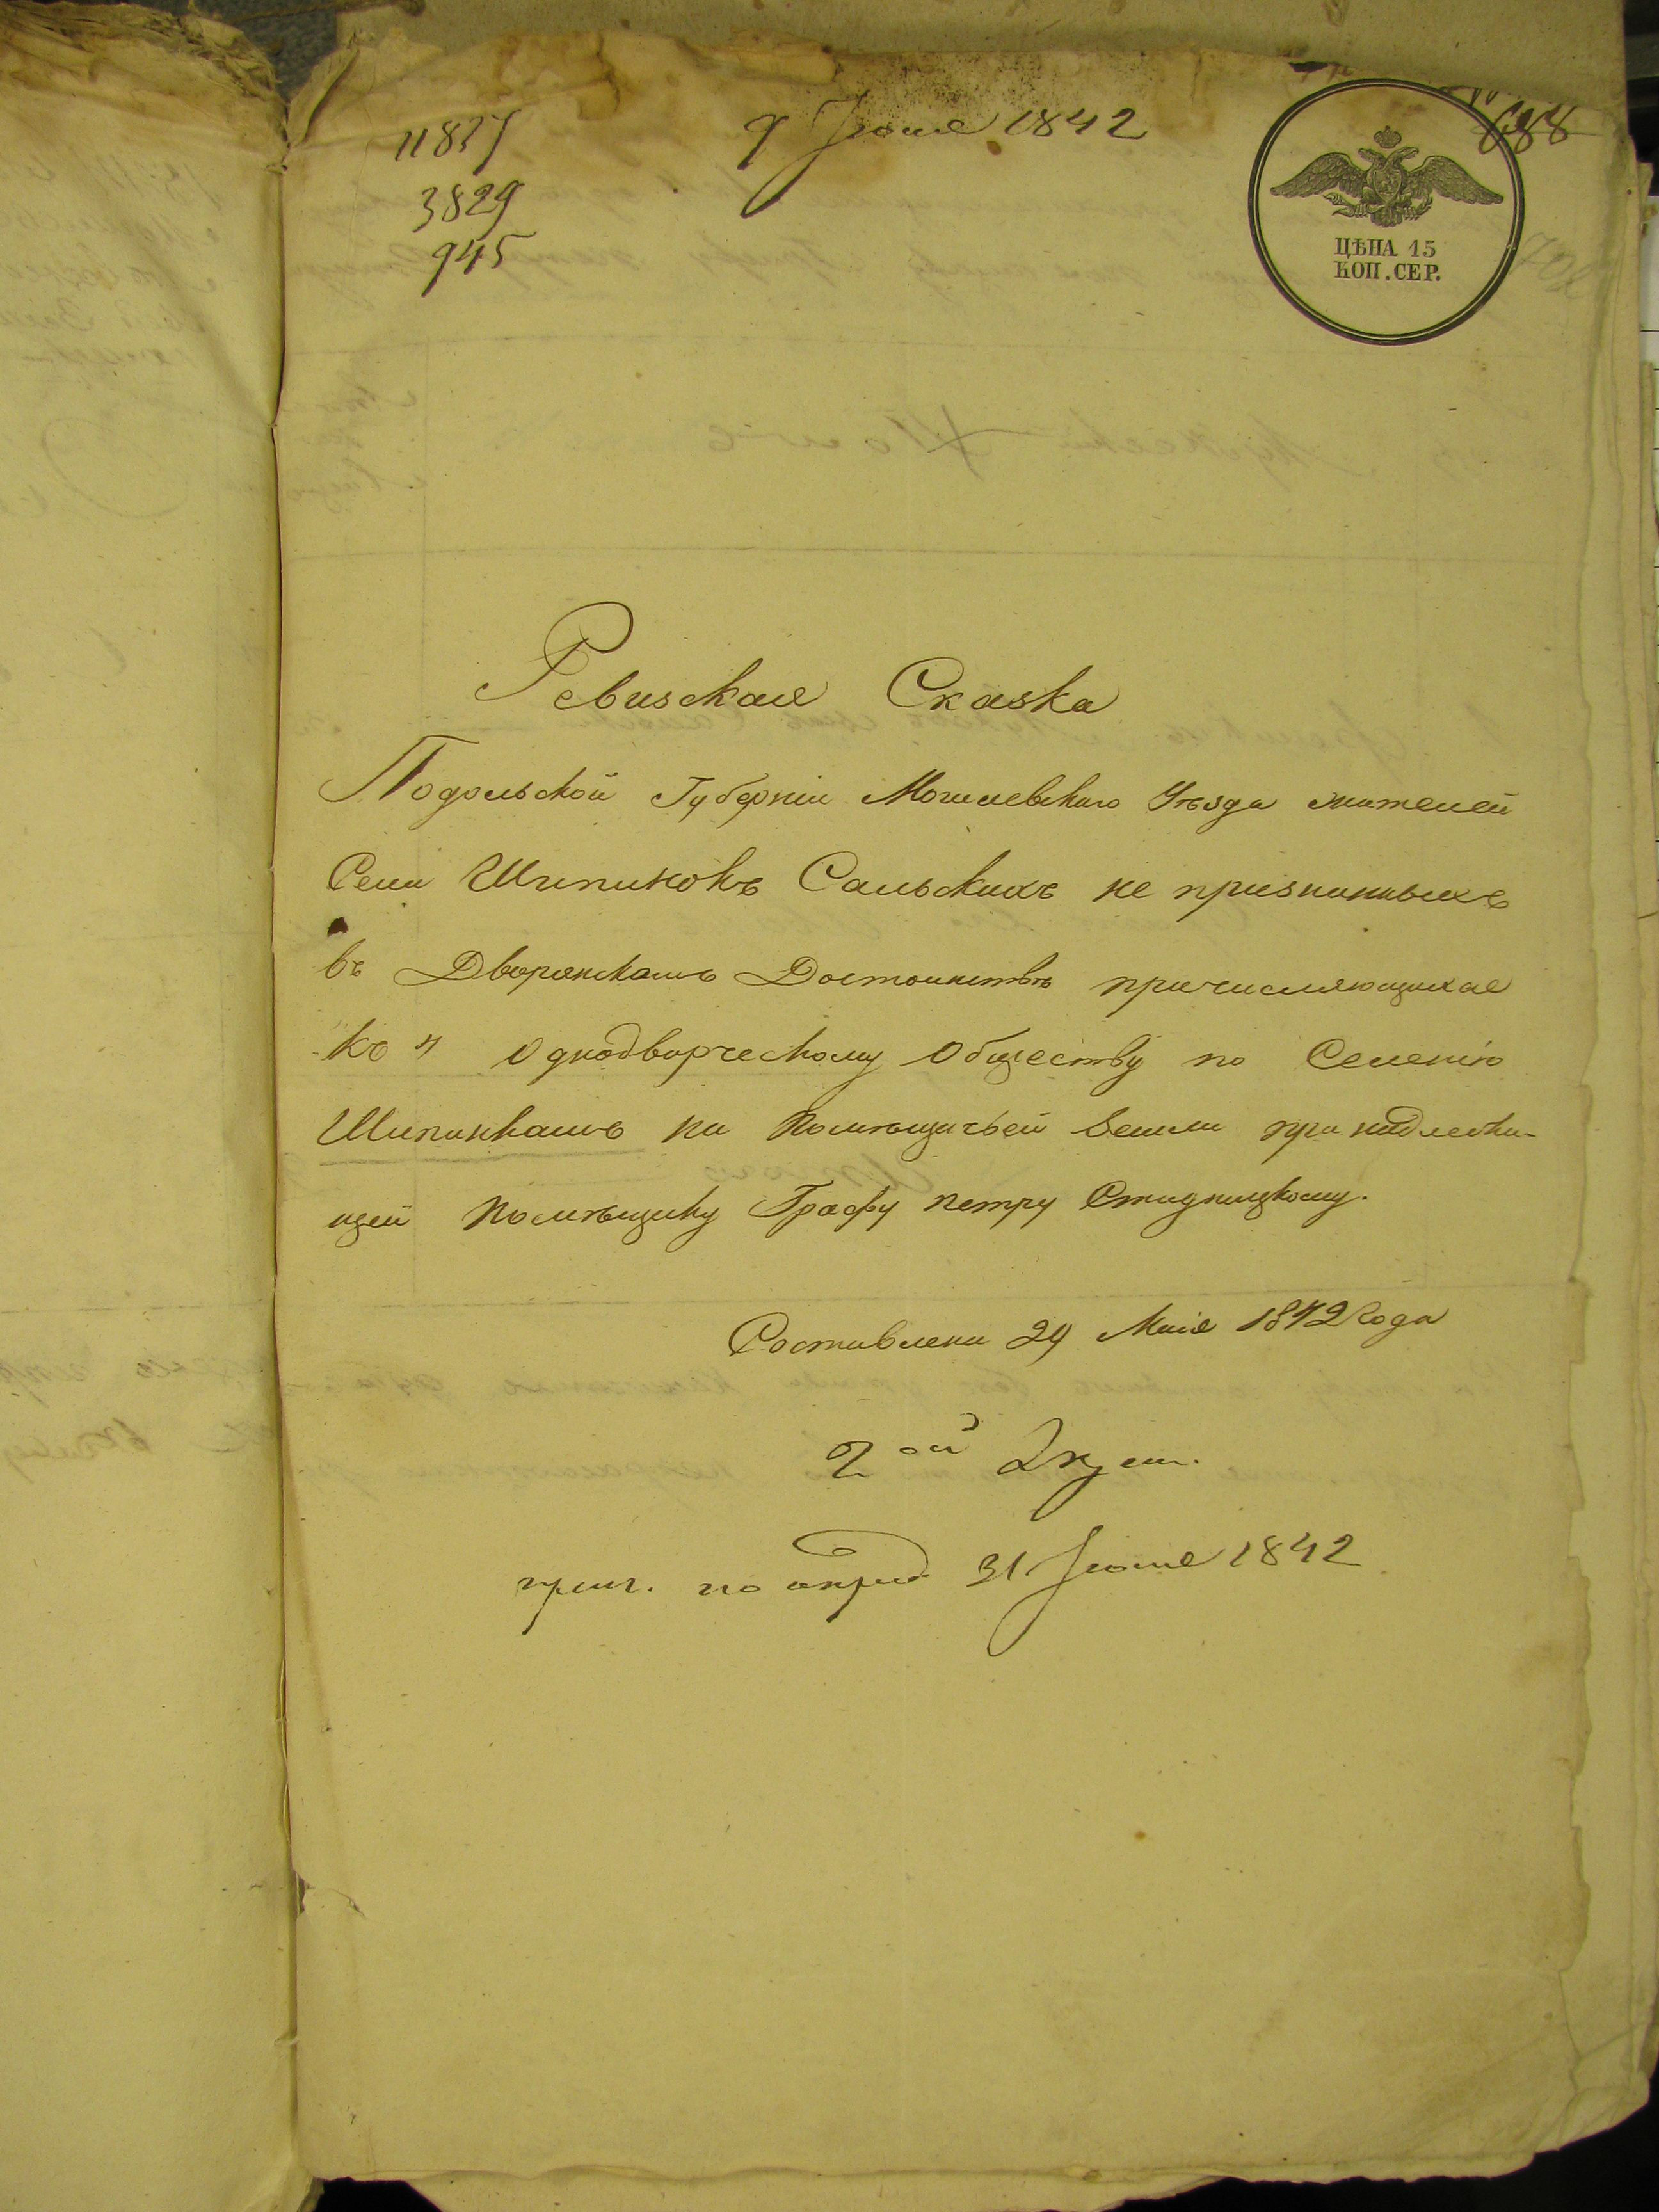 11827
3829
945
9 Іюня 1842
688
ЦѢНА 15
КОП. СЕР.
Ревизская Сказка
Подольской Губерніи Могилевскаго Уѣзда жителей
Села Шипиковъ Сальскихъ не признанныхъ
въ Дворянскомъ Достоинствѣ причисляющихся
къ 4 Однодворческому Обществу по Селенію
Шипинкамъ на Помѣщичьей Земли принадлежа-
щей Помѣщику Графу Петру Стадницкому.
Составлена 29 Маія 1842 Года
2ой Экзем.
31 Іюля 1842